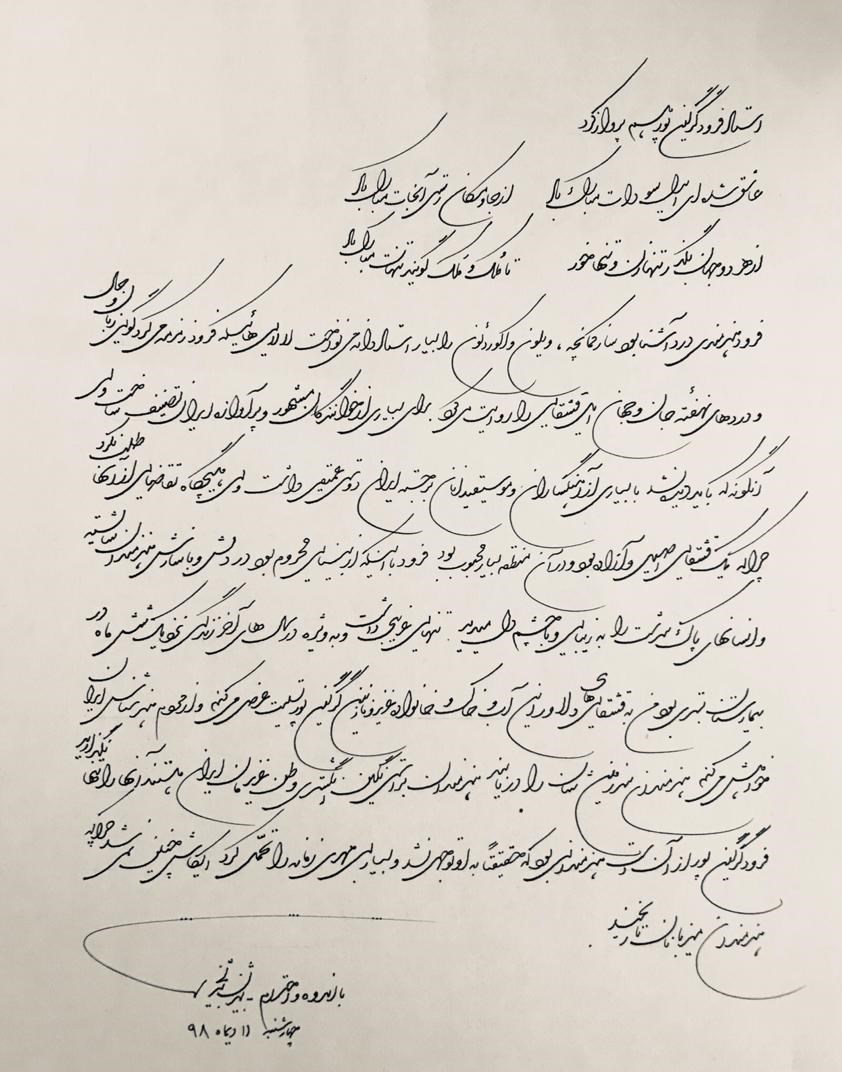 استاد فرود گرگین پور هم پرواز کرد
عاشق شده ای ای دل سودات مبارک باد از جا و مکان رستی آنجات مبارک باد
از هر دو جهان بگذر تنها زن و تنها خور تا ملک و ملک گویند تنهات مبارک باد
فرود هنرمندی درد آشنا بود ساز کمانچه ، ویلون و آکوردئون را بسیار استادانه می نواخت لالایی هائیکه فرود زمزمه می کرد گوئی زبان دل و جان
و دردهای نهفته جان و جهان ایل قشقایی را روایت می کرد برای بسیاری از خوانندگان مشهور و پرآوازه ایران تصنیف ساخت ولی
آنگونه که باید دیده نشد با بسیاری از آهنگسازان و موسیقیدانان برجسته ایران دوستی عمیقی داشت ولی هیچگاه تقاضایی از آنها طلب نکرد
چرا که یک قشقایی اصیل و آزاده بود و در آن منطقه بسیار محبوب بود فرود با اینکه از بینایی محروم بود در دلش و با سازش هنرمندان شایسته
و انسانهای پاک سرشت را به زیبایی و با چشم دل میدید . تنهایی غریبی داشت و به ویژه در سال های آخر زندگی نزدیک شش ماه در
بیمارستان بستری بود من به قشقایی های دلاور این آب و خاک و خانواده عزیز و نازنین گرگین پور تسلیت عرض می کنم و از مردم هنرشناس ایران
خواهش می کنم هنرمندان سرزمین شان را دریابند هنرمندان براستی نگین انگشتری وطن عزیزمان ایران هستند از آنها رو نگیرید
فرود گرگین پور از آن دست هنرمندانی بود که حقیقتاً به او توجهی نشد و بسیار بی مهری زمانه را تحمل کرد ایکاش چنین نمی شد چرا که
هنرمندان میزبانان تاریخند .
با اندوه و احترام - بیژن بیژنی
چهارشنبه ۱۱ دیماه ۹۸